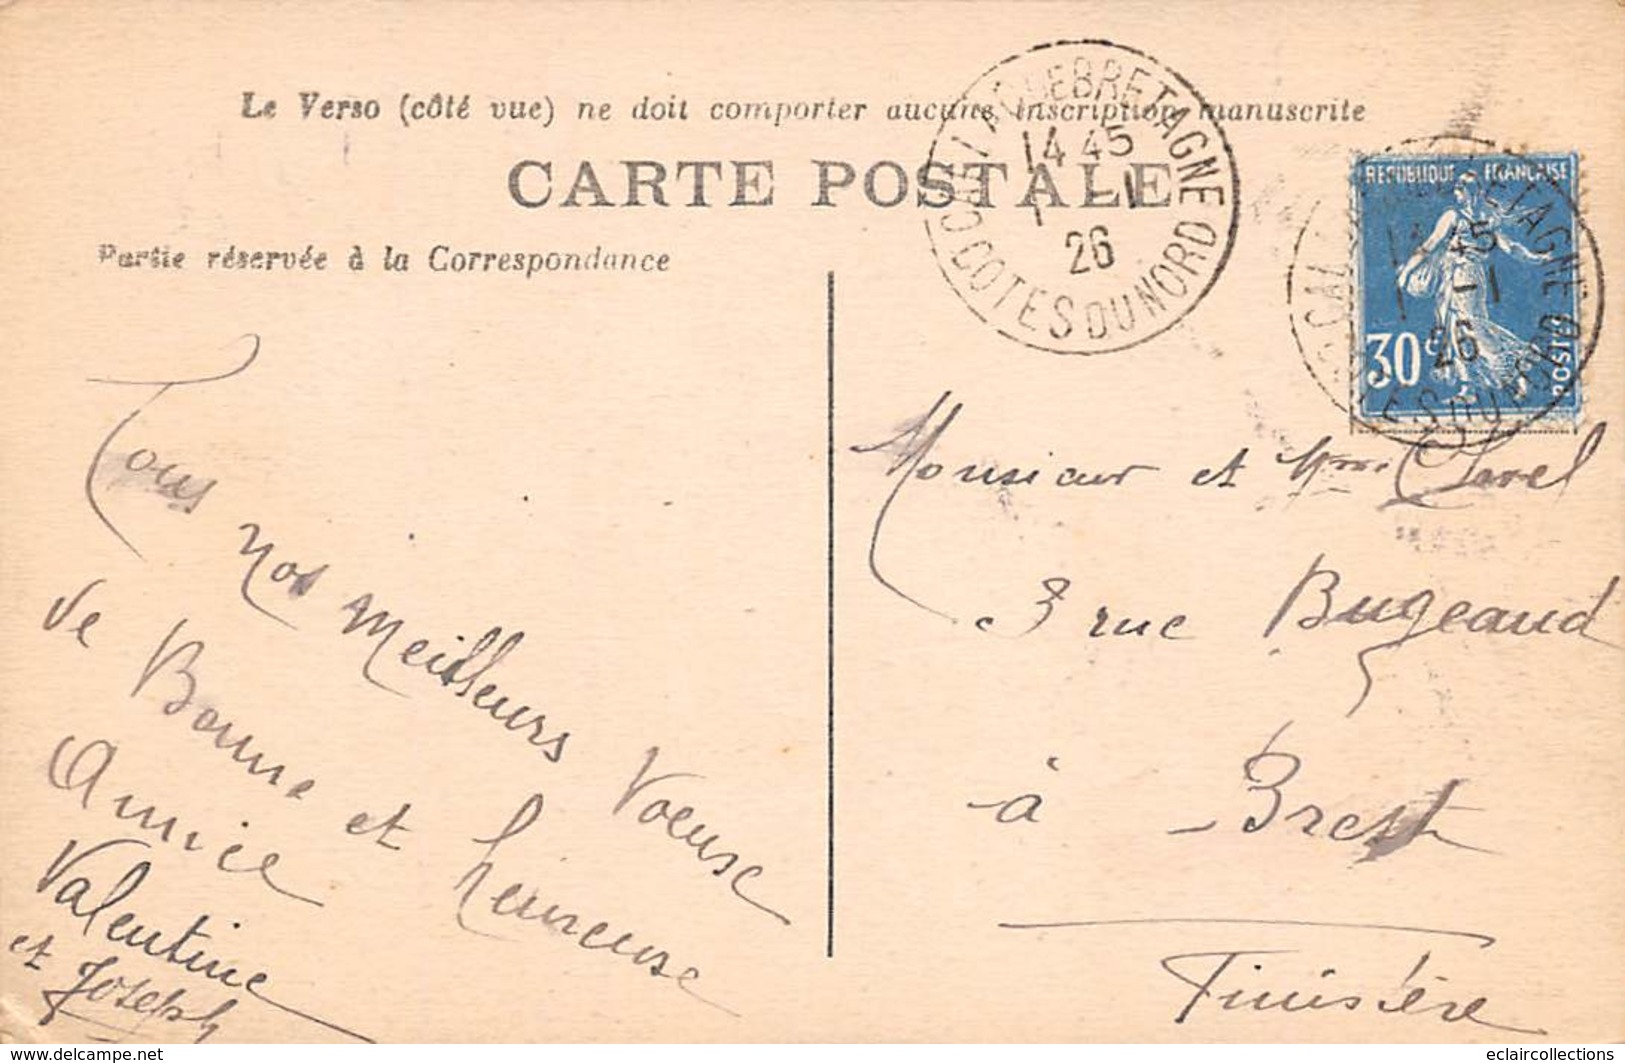 Le Verso (côté vue) ne doit comporter aucune inscription manuscrite
CARTE POSTALE
Partie réservée à la Correspondance
CALLAC DE BRETAGNE
14 45
1 -1
26
COTES DU NORD
REPUBLIQUE FRANÇAISE
30c
POSTES
14 45
1 -1
26
Tous nos meilleurs Voeuse
de Bonne et heureuse
Annice
Valentine
et Joseph
Monsieur et Mme Clorel
3 rue Bugeaud
à Brest
Finistère
www.delcampe.net
eclaircollections